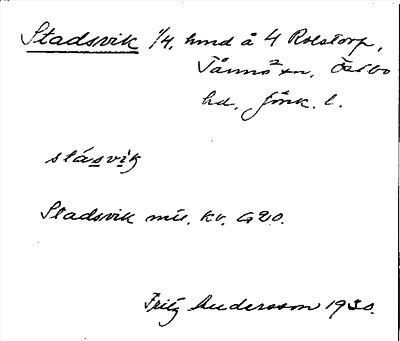 Stadsvik 1/4, hmd å 4 Rolstorp,
Tånnö sn, Östbo
hd, Jönk. l.
stásvik
Stadsvik mil. kv. G20.
Fritz Andersson 1930.